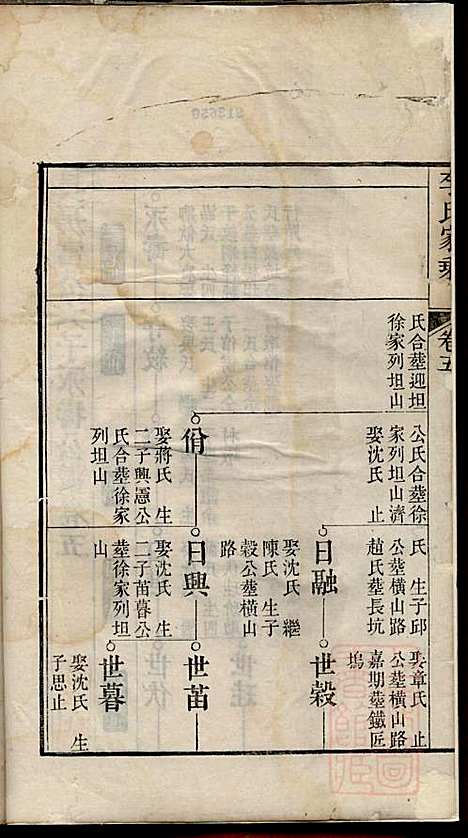 氏家乘
卷五
氏合塟迎坦
徐家列坦山
公氏合塟徐
家列坦山濟
娶沈氏 止
氏 生子邱
公塟橫山路
趙氏塟長坑
娶章氏 止
公塟橫山路
嘉期塟鐵匠
塢
日融
娶沈氏 繼
陳氏 生子
穀公塟橫山
路
世穀
佾
娶蔣氏 生
二子興憲公
氏合塟徐家
列坦山
日興
娶沈氏 生
二子苗暮公
塟徐家列坦
山
世苗
世暮
娶沈氏 生
子思止